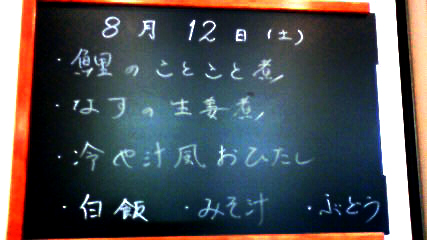 8月12日(土)
・鯉のことこと煮
・なすの生姜煮
・冷や汁風おひたし
・白飯 ・みそ汁 ・ぶどう